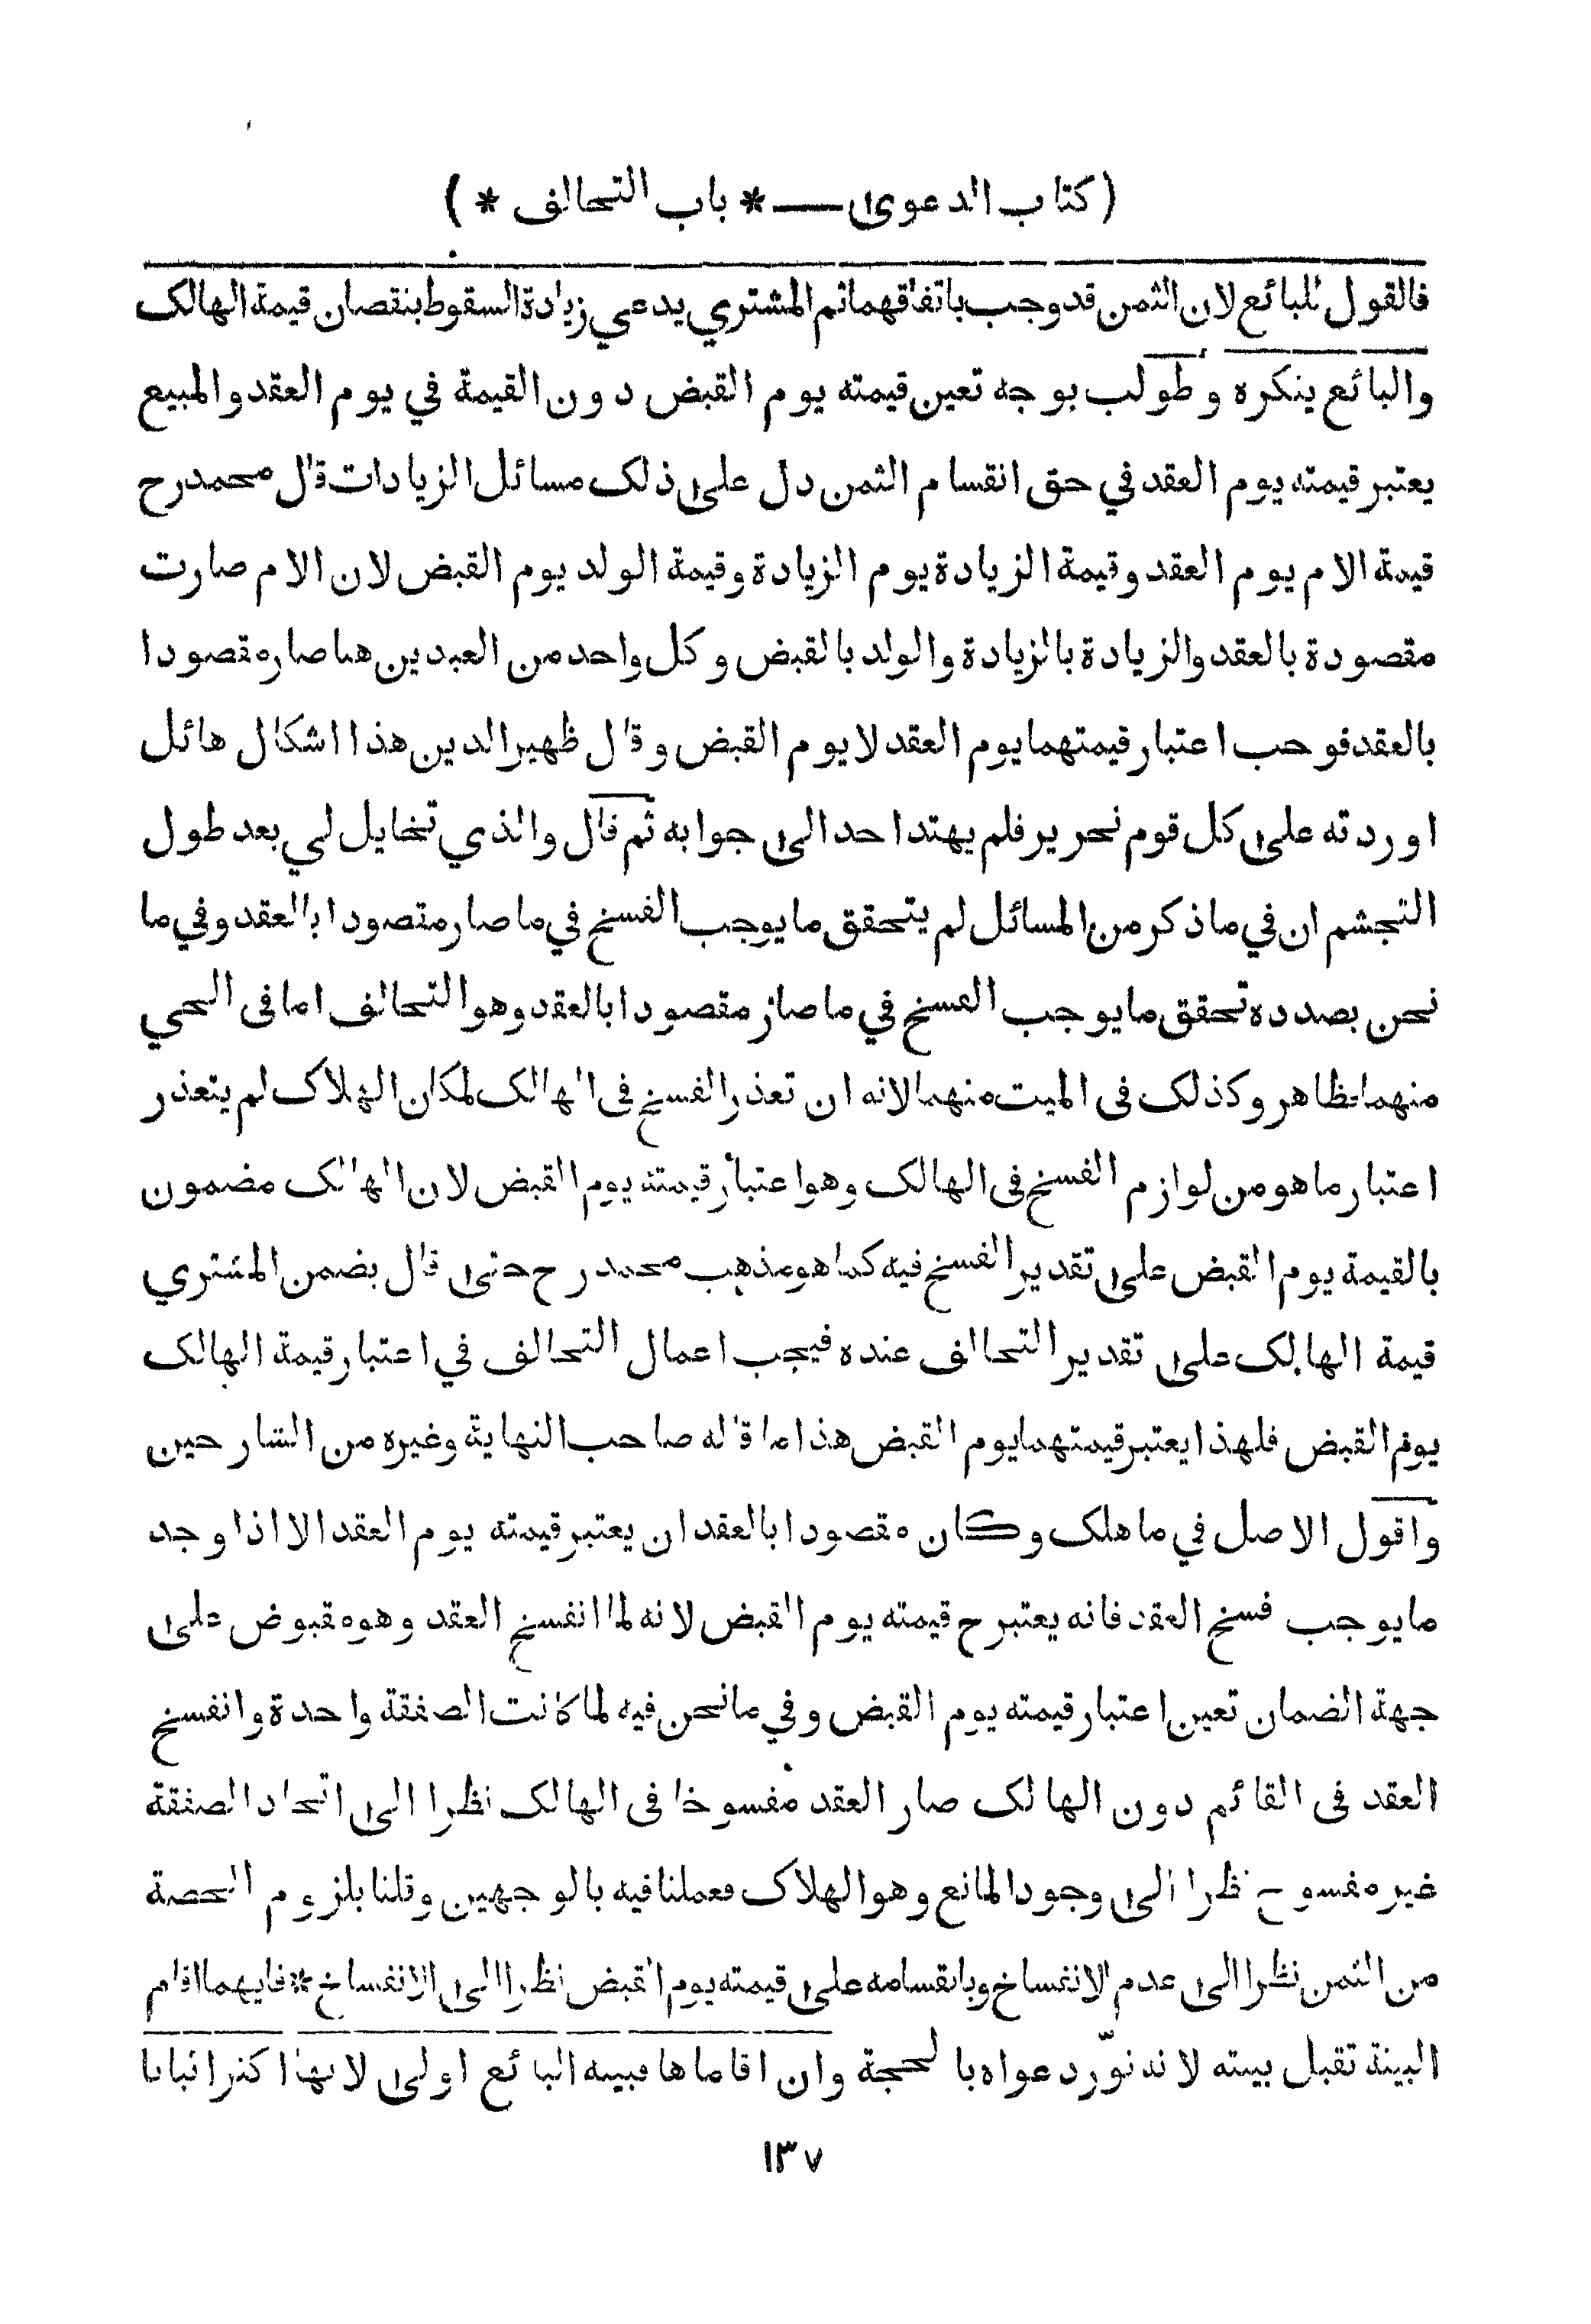 ( كتاب الدعوى — * باب التحالف * )
فالقول للبائع لان الثمن قد وجب باتفاقهما ثم المشتري يدعي زيادة السقوط بنقصان قيمة الهالك
والبائع ينكره وطولب بوجه تعين قيمته يوم القبض دون القيمة في يوم العقد والمبيع
يعتبر قيمته يوم العقد في حق انقسام الثمن دل على ذلك مسائل الزيادات قال محمد رح
قيمة الام يوم العقد وقيمة الزيادة يوم الزيادة وقيمة الولد يوم القبض لان الام صارت
مقصودة بالعقد والزيادة بالزيادة والولد بالقبض وكل واحد من العبدين هنا صار مقصودا
بالعقد فوجب اعتبار قيمتهما يوم العقد لا يوم القبض وقال ظهير الدين هذا اشكال هائل
اوردته على كل قوم نحرير فلم يهتد احد الى جوابه ثم قال والذي تخايل لي بعد طول
التجشم ان في ما ذكر من المسائل لم يتحقق ما يوجب الفسخ في ما صار مقصودا بالعقد وفي ما
نحن بصدده تحقق ما يوجب الفسخ في ما صار مقصودا بالعقد وهو التحالف اما فى الحي
منهما فظاهر وكذلك فى الميت منهما لانه ان تعذر الفسخ فى الهالك لمكان الهلاك لم يتعذر
اعتبار ما هو من لوازم الفسخ فى الهالك وهو اعتبار قيمته يوم القبض لان الهالك مضمون
بالقيمة يوم القبض على تقدير الفسخ فيه كما هو مذهب محمد رح حتى قال يضمن المشتري
قيمة الهالك على تقدير التحالف عنده فيجب اعمال التحالف في اعتبار قيمة الهالك
يوم القبض فلهذا يعتبر قيمتهما يوم القبض هذا ما قاله صاحب النهاية وغيره من الشارحين
واقول الاصل في ما هلك وكان مقصودا بالعقد ان يعتبر قيمته يوم العقد الا اذا وجد
ما يوجب فسخ العقد فانه يعتبر ح قيمته يوم القبض لانه لما انفسخ العقد وهو مقبوض على
جهة الضمان تعين اعتبار قيمته يوم القبض وفي ما نحن فيه لما كانت الصفقة واحدة وانفسخ
العقد فى القائم دون الهالك صار العقد مفسوخا فى الهالك نظرا الى اتحاد الصفقة
غير مفسوخ نظرا الى وجود المانع وهو الهلاك فعملنا فيه بالوجهين وقلنا بلزوم الحصة
من الثمن نظرا الى عدم الانفساخ وبانقسامه على قيمته يوم القبض نظرا الى الانفساخ * فايهما اقام
البينة تقبل بينته لانه نوّر دعواه بالحجة وان اقاماها فبينة البائع اولى لانها اكثر اثباتا
١٣٧